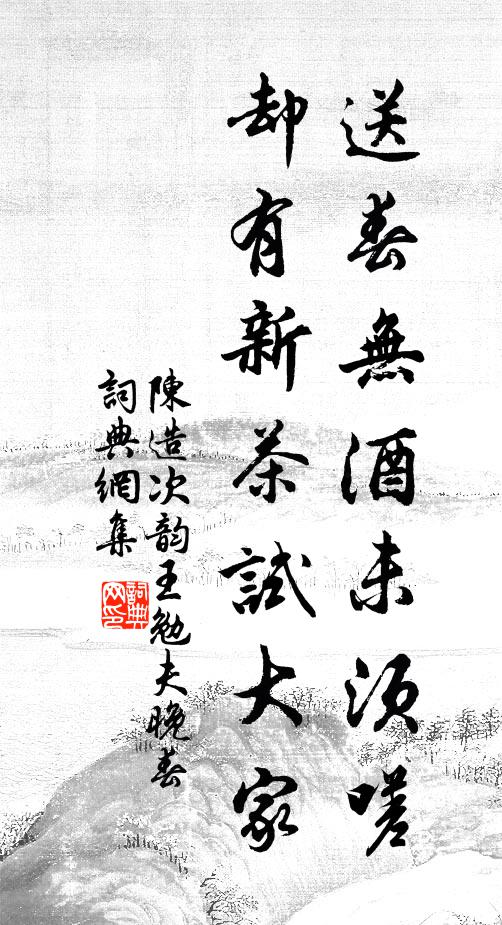 送春無酒未須嗟
却有新茶試大家
陳造次韵王勉夫晚春
詞典網集
詞典网印